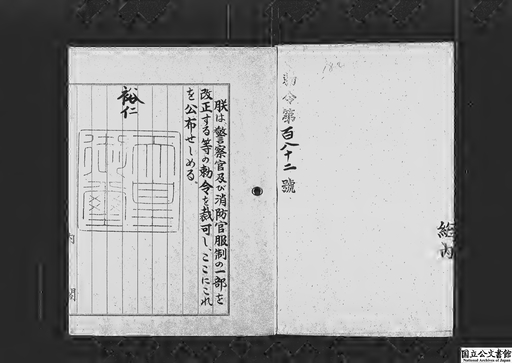 勅令第百八十二號
朕は、警察官及び消防官服制の一部を
改正する等の勅令を裁可し、ここにこれ
を公布せしめる。
裕仁
天皇御璽
内閣
総内
国立公文書館
National Archives of Japan